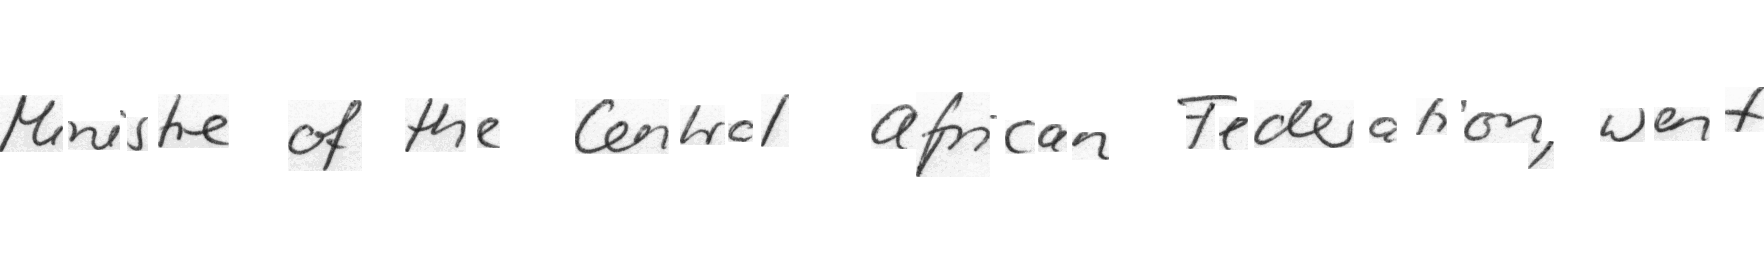 Ministre of the Central African Federation, went